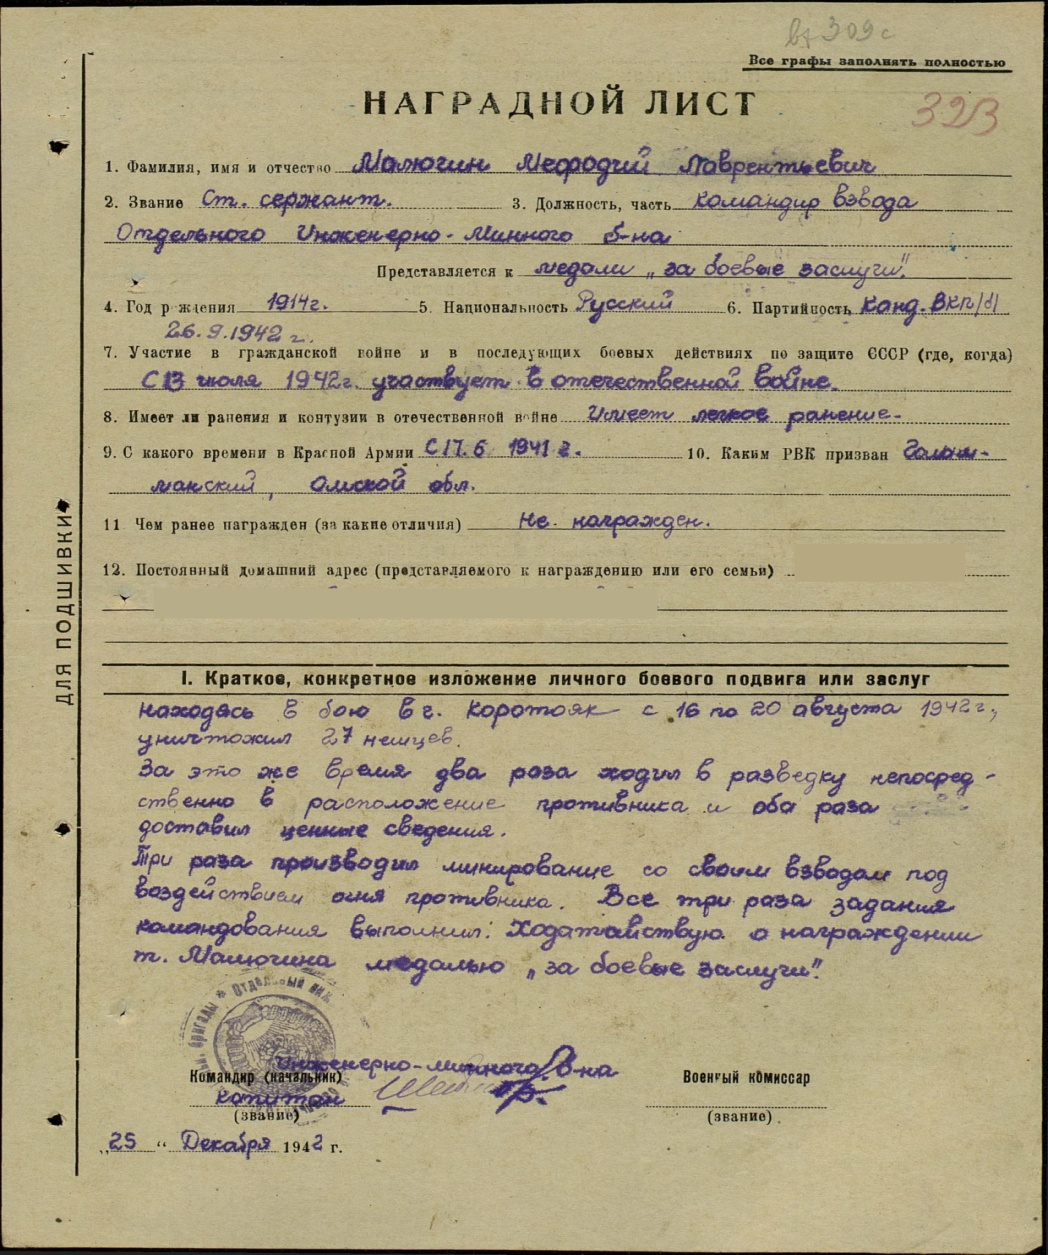 вх 309с
Все графы заполнять полностью
НАГРАДНОЙ ЛИСТ
323
1. Фамилия, имя и отчество Малюгин Мефодий Лаврентьевич
2. Звание Ст. сержант. 3. Должность, часть командир взвода
Отдельного Инженерно-Минного б-на
Представляется к медали „за боевые заслуги".
4. Год рождения 1914г. 5. Национальность Русский 6. Партийность Канд. ВКП/б/
26.9.1942 г.
7. Участие в гражданской войне и в последующих боевых действиях по защите СССР (где, когда)
С 13 июля 1942г. участвует в отечественной войне.
8. Имеет ли ранения и контузии в отечественной войне Имеет легкое ранение-
9. С какого времени в Красной Армии С 17.6 1941 г. 10. Каким РВК призван
манский, Омской обл.
11 Чем ранее награжден (за какие отличия) Не награжден.
12. Постоянный домашний адрес (представляемого к награждению или его семьи)
ДЛЯ ПОДШИВКИ
I. Краткое, конкретное изложение личного боевого подвига или заслуг
Находясь в бою в г. Коротояк с 16 по 20 августа 1942г.,
уничтожил 27 немцев.
За это же время два раза ходил в разведку непосред-
ственно в расположение противника и оба раза
доставил ценные сведения.
Три раза производил минирование со своим взводом под
воздействием огня противника. Все три раза задания
командования выполнил. Ходатайствую о награждении
т. Малюгина медалью „за боевые заслуги".
бригады * Отдельный
Инженерно-минного б-на
Командир (начальник) Военный комиссар
капитан
(звание) (звание)
„25" Декабря 1942 г.